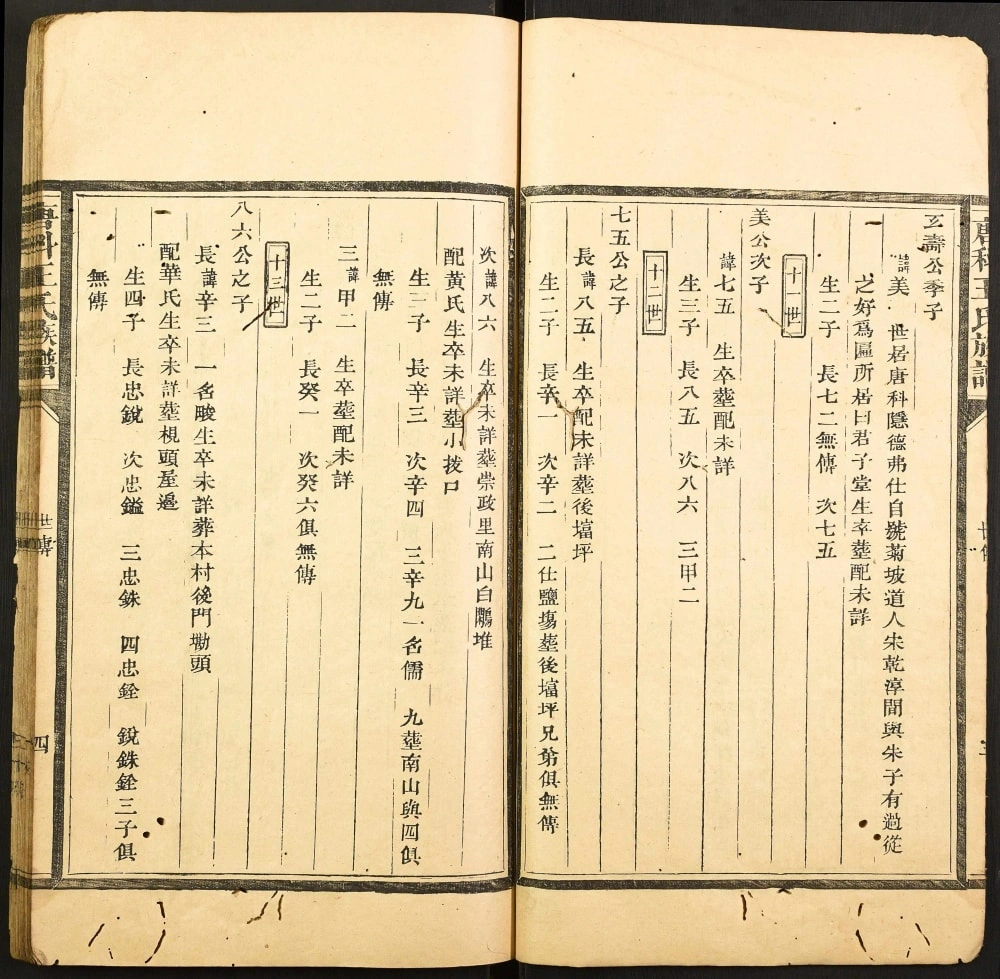 玄壽公季子
諱美 世居唐科隱德弗仕自號菊坡道人朱乾淳間與朱子有過從
之好爲匾所居曰君子堂生卒塟配未詳
生二子 長七二無傳 次七五
十一世
美公次子
諱七五 生卒塟配未詳
生三子 長八五 次八六 三甲二
十二世
七五公之子
長諱八五 生卒配未詳塟後墖坪
生二子 長辛一 次辛二 二仕鹽塲塟後墖坪兄弟俱無傳
次諱八六 生卒未詳塟崇政里南山白鷴堆
配黃氏生卒未詳塟小拨口
生三子 長辛三 次辛四 三辛九一名儒 九塟南山與四俱
無傳
三諱甲二 生卒塟配未詳
生二子 長癸一 次癸六俱無傳
十三世
八六公之子
長諱辛三 一名畯生卒未詳葬本村後門墈頭
配華氏生卒未詳塟梘頭屋邊
生四子 長忠銳 次忠鎰 三忠銖 四忠銓 銳銖銓三子俱
無傳
唐科王氏族譜
世傳
四